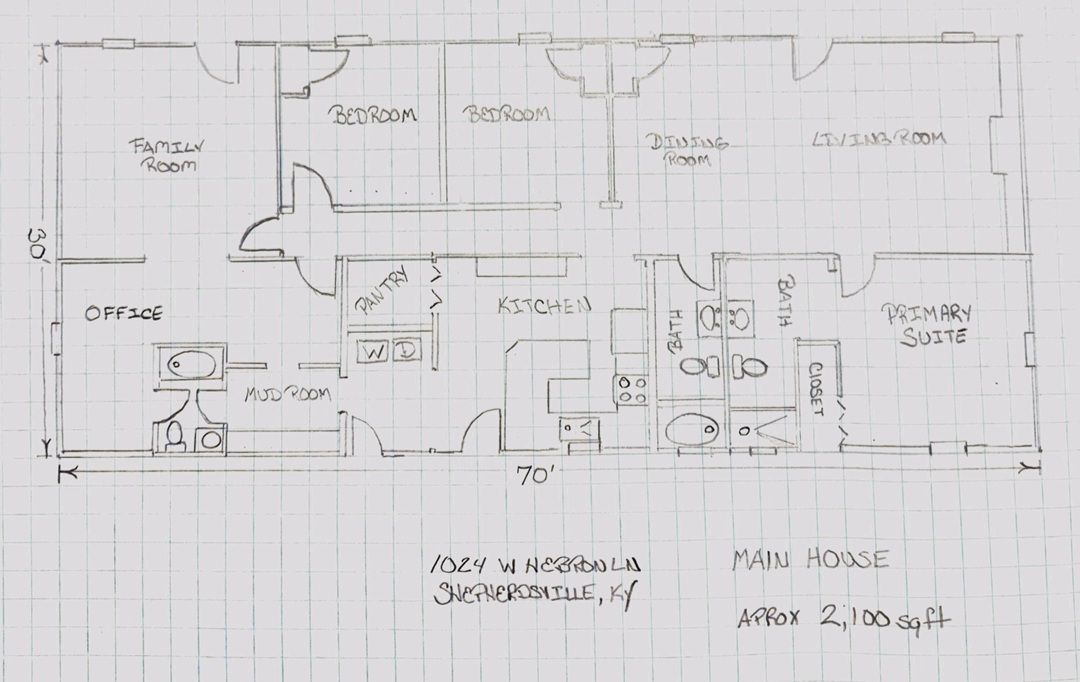 BEDROOM
BEDROOM
FAMILY
ROOM
DINING
ROOM
LIVING ROOM
30'
PANTRY
OFFICE
KITCHEN
BATH
BATH
PRIMARY
SUITE
W D
MUD ROOM
CLOSET
70'
1024 W HEBRON LN
SHEPHERDSVILLE, KY
MAIN HOUSE
APROX 2,100 sqft